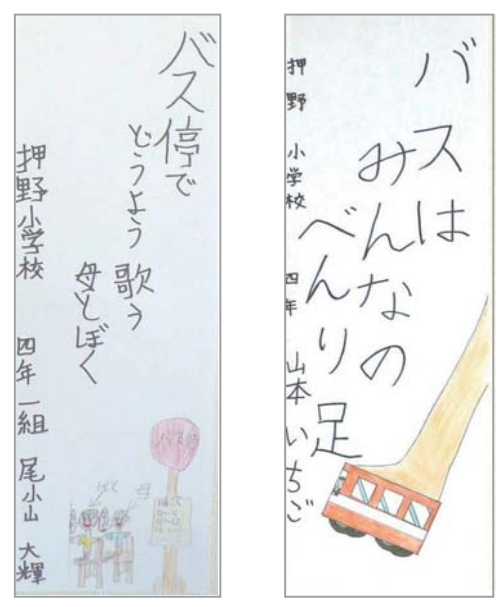 バス停で
どうよう歌う
母とぼく
押野小学校 四年一組 尾小山 大輝
バス
ぼく
母
バスは
みんなの
べんり足
押野小学校 四年 山本いちご